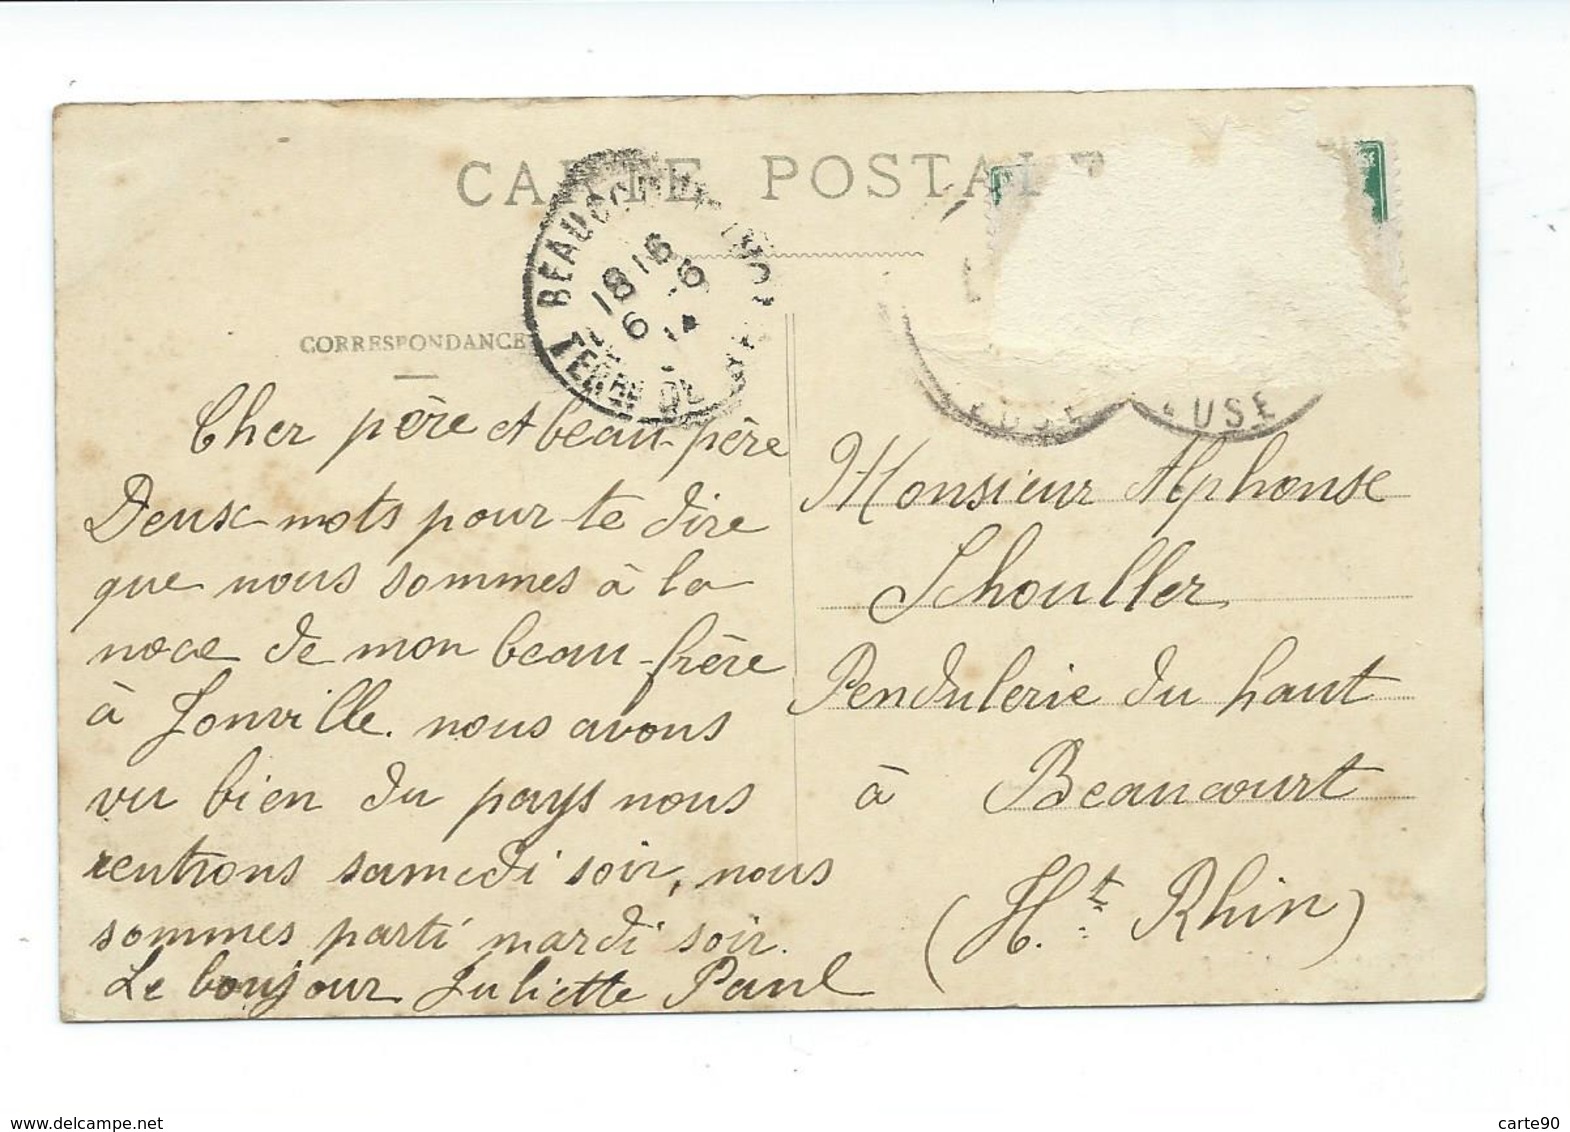 CARTE POSTALE
CORRESPONDANCE
BEAUCOURT
TERRE DE
EUSE
Cher père et beau-père
Deux mots pour te dire
que nous sommes à la
noce de mon beau-frère
à Jonville. nous avons
vu bien du pays nous
rentrons samedi soir, nous
sommes parti mardi soir.
Le bonjour Juliette Paul
Monsieur Alphonse
Schouller
Pendulerie du haut
à Beaucourt
(Ht. Rhin)
delcampe.net
carte90